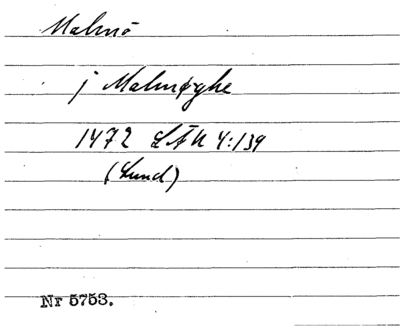 Malmö
j Malmøghe
1472 LÄU 4:139
(Lund)
Nr 5753.